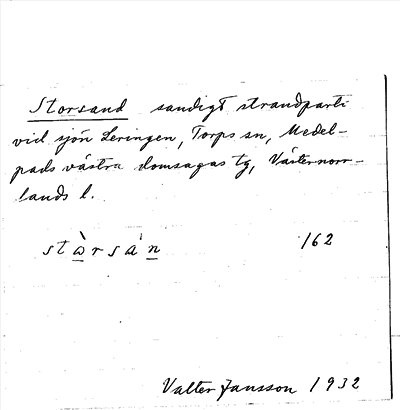 Storsand sandigt strandparti
vid sjön Leringen, Torps sn, Medel-
pads västra domsagas tg, Västernorr-
lands l.
stὼrsan 162
Valter Jansson 1932